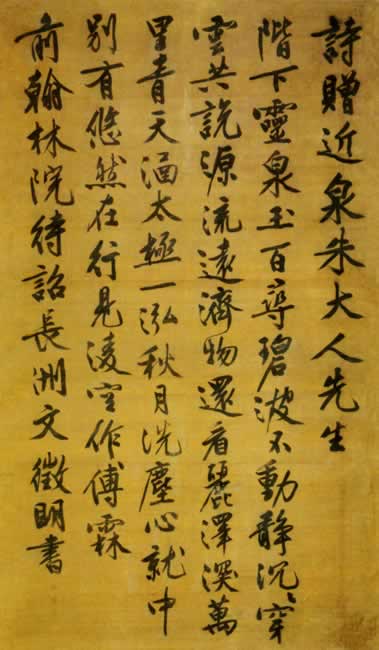 詩贈近泉朱大人先生
階下靈泉玉百尋碧波不動靜沉穿
雲共說源流遠濟物還看麗澤深萬
里青天涵太極一泓秋月洗塵心就中
別有悠然在行見淩空作傅霖
前翰林院待詔長洲文徵明書